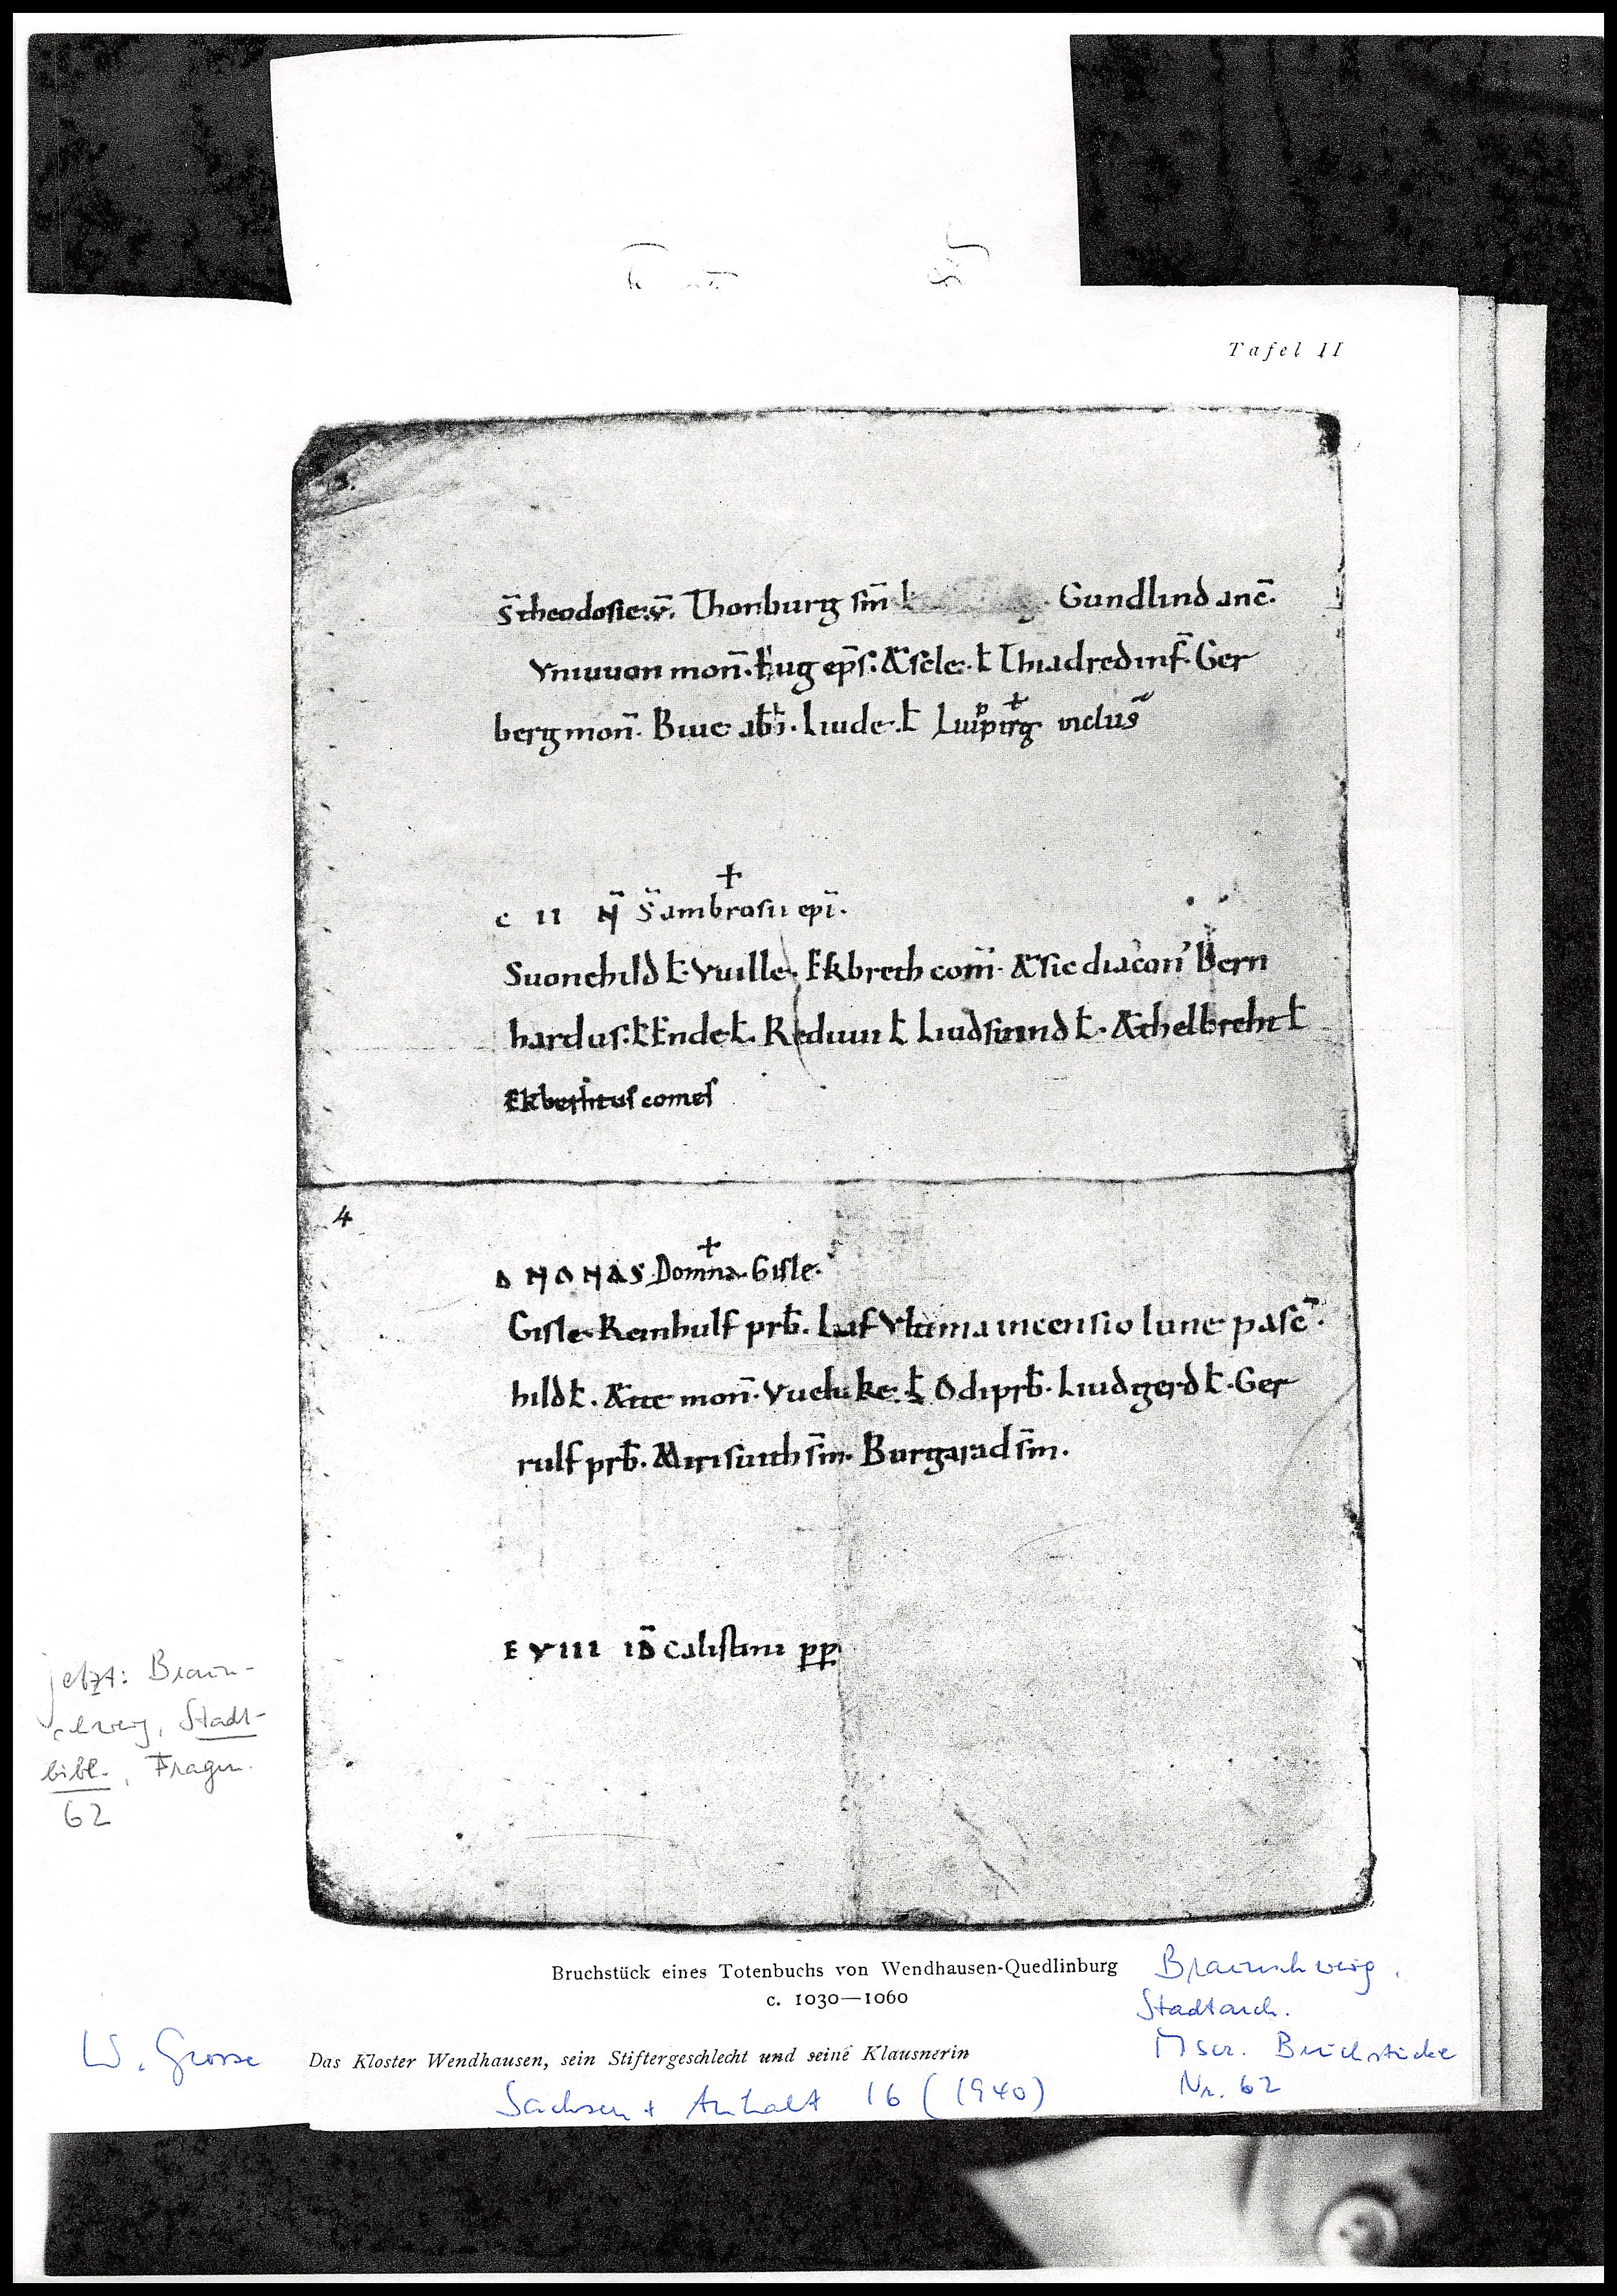 Tafel II
S̄ theodosie. v̄. Thonburg sm̄ ƚ Gundlind anc̄.
Vniuuan mon̄. Hug ep̄s. Æscle. ƚ Thiadred inf̄. Ger
berg mon̄. Biue Liude. ƚ Liupirg inclus
+
c II N̄ S̄ ambrosii epī.
Suonehild ƚ. Vuille. Ekbreth com̄. Æsic diacon' Bern
hardus. ƚ Ende. ƚ. Reduui ƚ Liudsuind ƚ. Æthelbreht ƚ
Ekberhtus comes
4
+
D NONAS. Domna. Gisle.
Gisle. Reinhulf prb̄. Laf Vltima incensio lune pasc̄.
hild ƚ. Ætte mon̄. Vueluke. ƚ Odi prb̄. Liudgerd ƚ. Ger
rulf prb̄. s̄m. Burgarad s̄m.
E VIII ID̄ Calistini pp
jetzt: Braun-
schweig, Stadt-
bibl., Fragm.
62
Bruchstück eines Totenbuchs von Wendhausen-Quedlinburg
c. 1030—1060
Braunschweig,
Stadtarch.
Mscr. Bruchstücke
Nr. 62
W. Grosse Das Kloster Wendhausen, sein Stiftergeschlecht und seine Klausnerin
Sachsen + Anhalt 16 (1940)